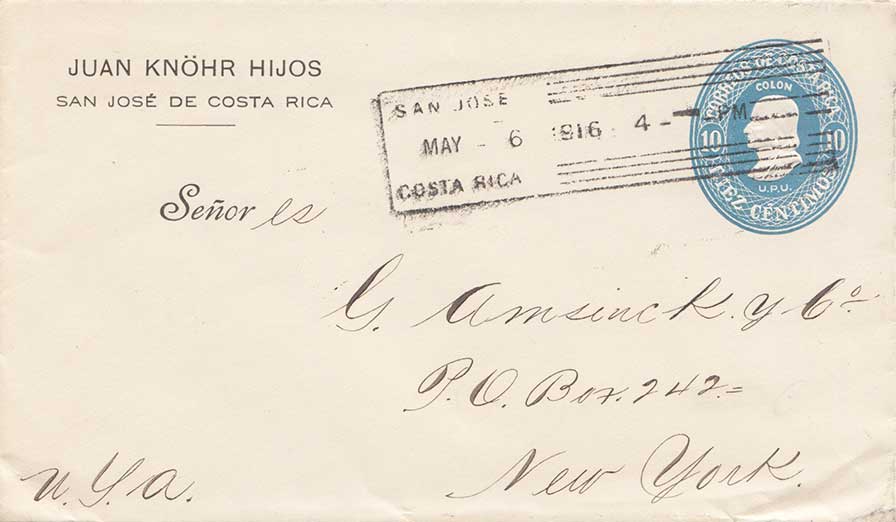 JUAN KNÖHR HIJOS
SAN JOSÉ DE COSTA RICA
SAN JOSE
MAY 6 1916 4 - PM
COSTA RICA
CORREOS DE COSTA RICA
COLON
10 10
U.P.U.
DIEZ CENTIMOS
Señor es
G. Amsinck. y Co.
P.O. Box. 242.=
New York.
U.S.A.